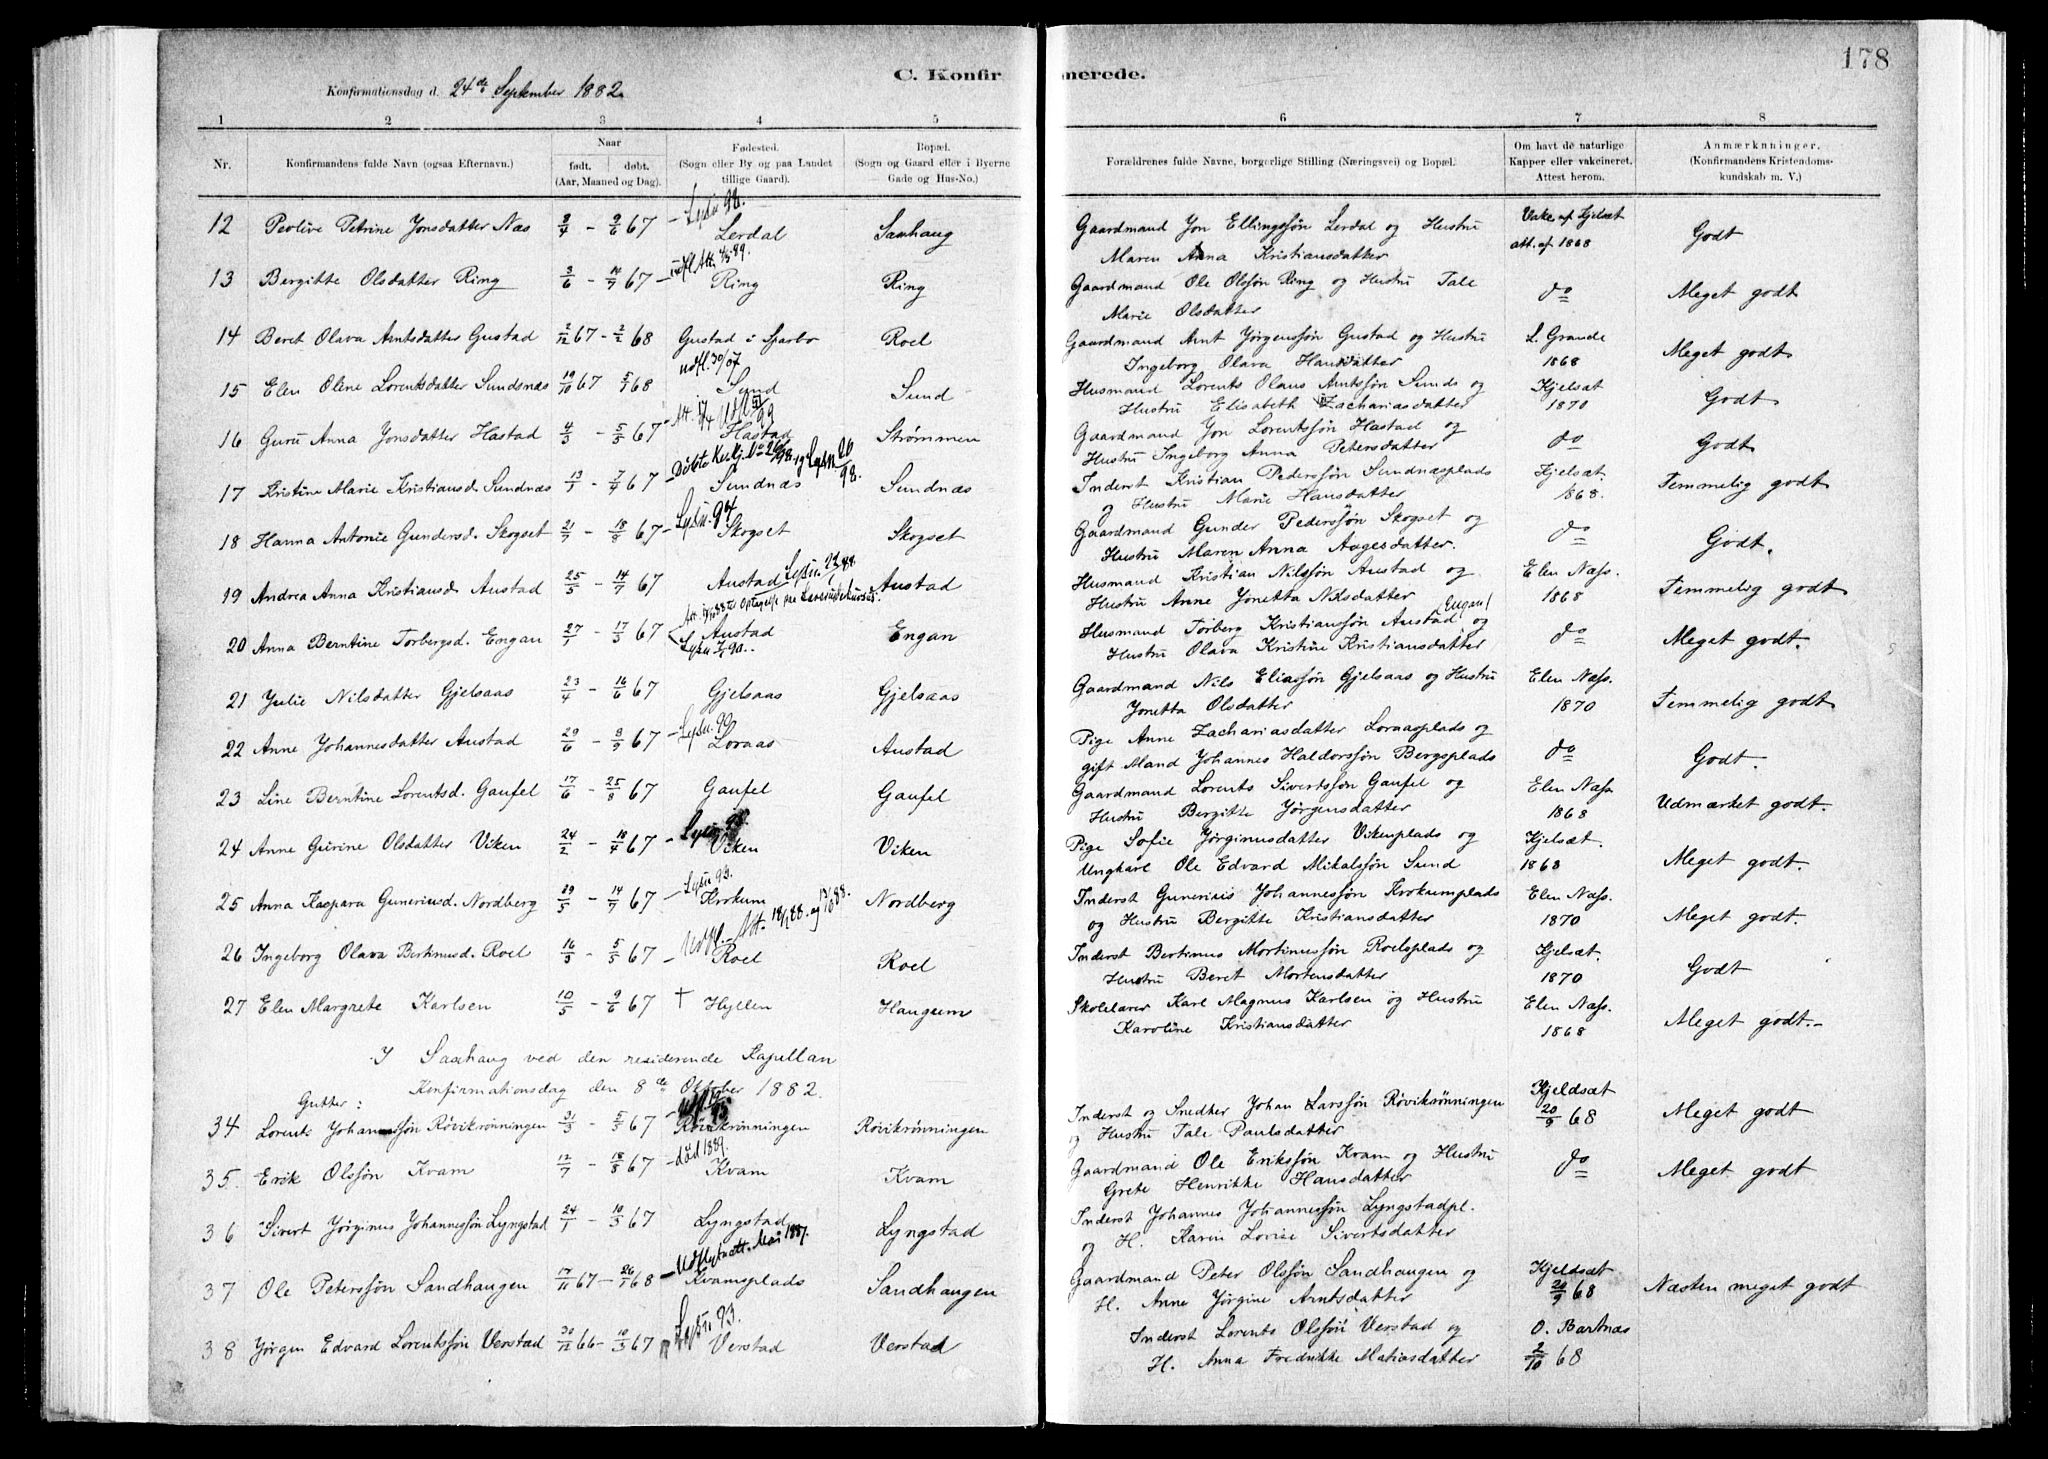 178
C. Konfirmerede.
Konfirmationsdag d. 24de September 1882.
1 2 3 4 5 6 7 8
Nr. Konfirmandens fulde Navn (ogsaa Efternavn.) Naar født. døbt. (Aar, Maaned og Dag). Fødested. (Sogn eller By og paa Landet tillige Gaard). Bopæl. (Sogn og Gaard eller i Byerne Gade og Hus-No.) Forældrenes fulde Navne, borgerlige Stilling (Næringsvei) og Bopæl. Om havt de naturlige Kopper eller vakcineret. Attest herom. Anmærkninger. (Konfirmandens Kristendomskundskab m. V.)
12 Petrine Jonsdatter Næs 3/4 - 9/6 67 Lysn. 98. Lerdal Saxhaug Gaardmand Jon Ellingssøn Lerdal og Hustru Vakc. af Kjelsæt Godt
Maren Anna Kristiansdatter att. af 1868
13 Bergitte Olsdatter Ring 3/6 - 14/7 67 Ring Ring Gaardmand Ole Olssøn Ring og Hustru Tale do Meget godt
Marie Olsdatter
14 Beret Olava Arntsdatter Gustad 2/12 67 - 2/2 68 Gustad i Sparbo Roel Gaardmand Arnt Jørgenssøn Gustad og Hustru L. Grande Meget godt
Ingeborg Olava Hansdatter 1868
15 Elen Oline Lorentsdatter Sundsnæs 19/10 67 5/1 68 udfl. 30/07 Sund Sund Husmand Lorents Olaus Arntssøn Sunds og Kjelsæt Godt
Hustru Elisabeth Zachariasdatter 1870
16 Guru Anna Jonsdatter Hastad 4/3 - 5/5 67 Hastad Strømmen Gaardmand Jon Lorentssøn Hastad og do Godt
Hustru Ingeborg Anna Petersdatter
17 Kristine Marie Kristiansd. Sundnæs 13/1 - 7/4 67 Sundnæs Sundnæs Inderst Kristian Pederssøn Sundnæsplads Kjelsæt. Temmelig godt
og Hustru Marie Hansdatter 1868.
18 Hanna Antonie Gundersd. Skogset 21/7 - 18/8 67 Lysn. 94 Skogset Skogset Gaardmand Gunder Pederssøn Skogset og do Godt.
Hustru Maren Anna Aagesdatter.
19 Andrea Anna Kristiansd. Austad 25/5 - 14/7 67 Austad Austad Husmand Kristian Nilssøn Austad og Elen Næss. Temmelig godt
Hustru Anne Jonetta Nilsdatter 1868
20 Anna Berntine Torbergsd. Engan 27/1 - 17/3 67 Austad Engan Husmand Torberg Kristianssøn Austad (Engan) og do Meget godt.
Hustru Olava Kristine Kristiansdatter
21 Julie Nilsdatter Gjelsaas 23/4 - 16/6 67 Gjelsaas Gjelsaas Gaardmand Nils Eliassøn Gjelsaas og Hustru Elen Næss. Temmelig godt
Jonetta Olsdatter 1870
22 Anne Johannesdatter Austad 29/6 - 8/9 67 Lysn. 90 Loraas Austad Pige Anne Zachariasdatter Loraasplads og do Godt.
gift Mand Johannes Haldorssøn Bergsplads
23 Line Berntine Lorentsd. Gaufel 17/6 - 25/8 67 Gaufel Gaufel Gaardmand Lorents Sivertssøn Gaufel og Elen Næss Udmærket godt.
Hustru Bergitte Jørgensdatter 1868
24 Anne Gurine Olsdatter Viken 24/2 - 10/4 67 Viken Viken Pige Sofie Jørginusdatter Vikenplads og Kjelsæt. Meget godt.
Ungkarl Ole Edvard Mikalssøn Sund 1868
25 Anna Kaspara Guneriusd. Nordberg 29/5 - 14/7 67 Lysn. 93. Krokum Nordberg Inderst Gunerius Johannessøn Krokumplads Elen Næss. Meget godt.
og Hustru Bergitte Kristiansdatter 1870
26 Ingeborg Olava Bertinusd. Roel 16/3 - 5/5 67 Roel Roel Inderst Bertinus Mortinussøn Roelsplads og Kjelsæt. Godt
Hustru Beret Mortensdatter 1870
27 Elen Margrete Karlsen 10/5 - 9/6 67 † Hyllen Haugum Skolelærer Karl Magnus Karlsen og Hustru Elen Næss. Meget godt.
Karoline Kristiansdatter 1868
I Saxhaug ved den residerende Kapellan
Konfirmationsdag den 8de Oktober 1882.
Gutter:
34 Lorents Johannssøn Røvikrønningen 31/3 - 5/5 67 Røvikrønningen Røvikrønningen Inderst og Snedker Johan Larssøn Røvikrønningen Kjeldsæt Meget godt
og Hustru Tale Paulsdatter 20/9 68
35. Erik Olssøn Kvam 12/7 - 18/8 67 død 1889. Kvam Kvam Gaardmand Ole Erikssøn Kvam og Hustru do Meget godt
Grete Henrikke Hansdatter
36 Sivert Jørginus Johannessøn Lyngstad 24/1 - 10/3 67 Lyngstad Lyngstad Inderst Johannes Johannessøn Lyngstadpl.
og H. Karin Lovise Sivertsdatter
37 Ole Peterssøn Sandhaugen 17/11 67 - 26/1 68 Udflytn.att. Mai 1887. Kvamsplads Sandhaugen Gaardmand Peter Olssøn Sandhaugen og Kjeldsæt Næsten meget godt
H. Anne Jørgine Arntsdatter 20/9 68
38 Jørgen Edvard Lorentssøn Verstad 30/12 66 - 10/3 67 Lysn. 93. Verstad Verstad Inderst Lorents Olssøn Verstad og O. Bartnæs
H. Anna Fredrikke Matiasdatter 2/10 68